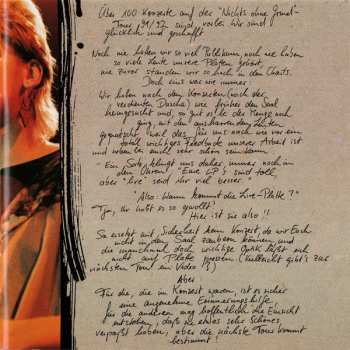 Über 100 Konzerte auf der "Nichts ohne Grund"-
Tour 91/92 sind vorbei. Wir sind
glücklich und geschafft.
Noch nie haben wir so viel Publikum, noch nie haben
so viele Leute unsere Platten gehört,
nie zuvor standen wir so hoch in den Charts.
Doch eins war wie immer:
Wir haben nach den Konzerten (noch der
verdienten Dusche) wie früher den Saal
heimgesucht und, so gut es bei der Menge noch
ging, mit den ausharrenden Leuten
gequatscht, weil das für uns nach wie vor ein
total wichtiges Feedback unserer Arbeit ist
und wenn Ihr auch sehr schön sein kann.
Ein Satz klingt uns daher immer noch in
den Ohren: "Eure LP's sind toll,
aber "live" seid Ihr viel besser."
"Also: Wann kommt die Live-Platte?"
Tja, Ihr habt es so gewollt!
Hier ist sie also!!
So ersetzt mit Sicherheit kein Konzert, da wir Euch
nicht in den Saal zaubern können, und
die manchmal doch wichtige Optik läßt sich
nicht auf Platte pressen. (Vielleicht gibt's zur
nächsten Tour ein Video!)
Aber:
Für die, die im Konzert waren, ist es sicher
eine angenehme Erinnerungshilfe,
für die anderen mag hoffentlich die Einsicht
entstehen, daß sie etwas sehr Schönes
verpaßt haben, aber die nächste Tour kommt
bestimmt!